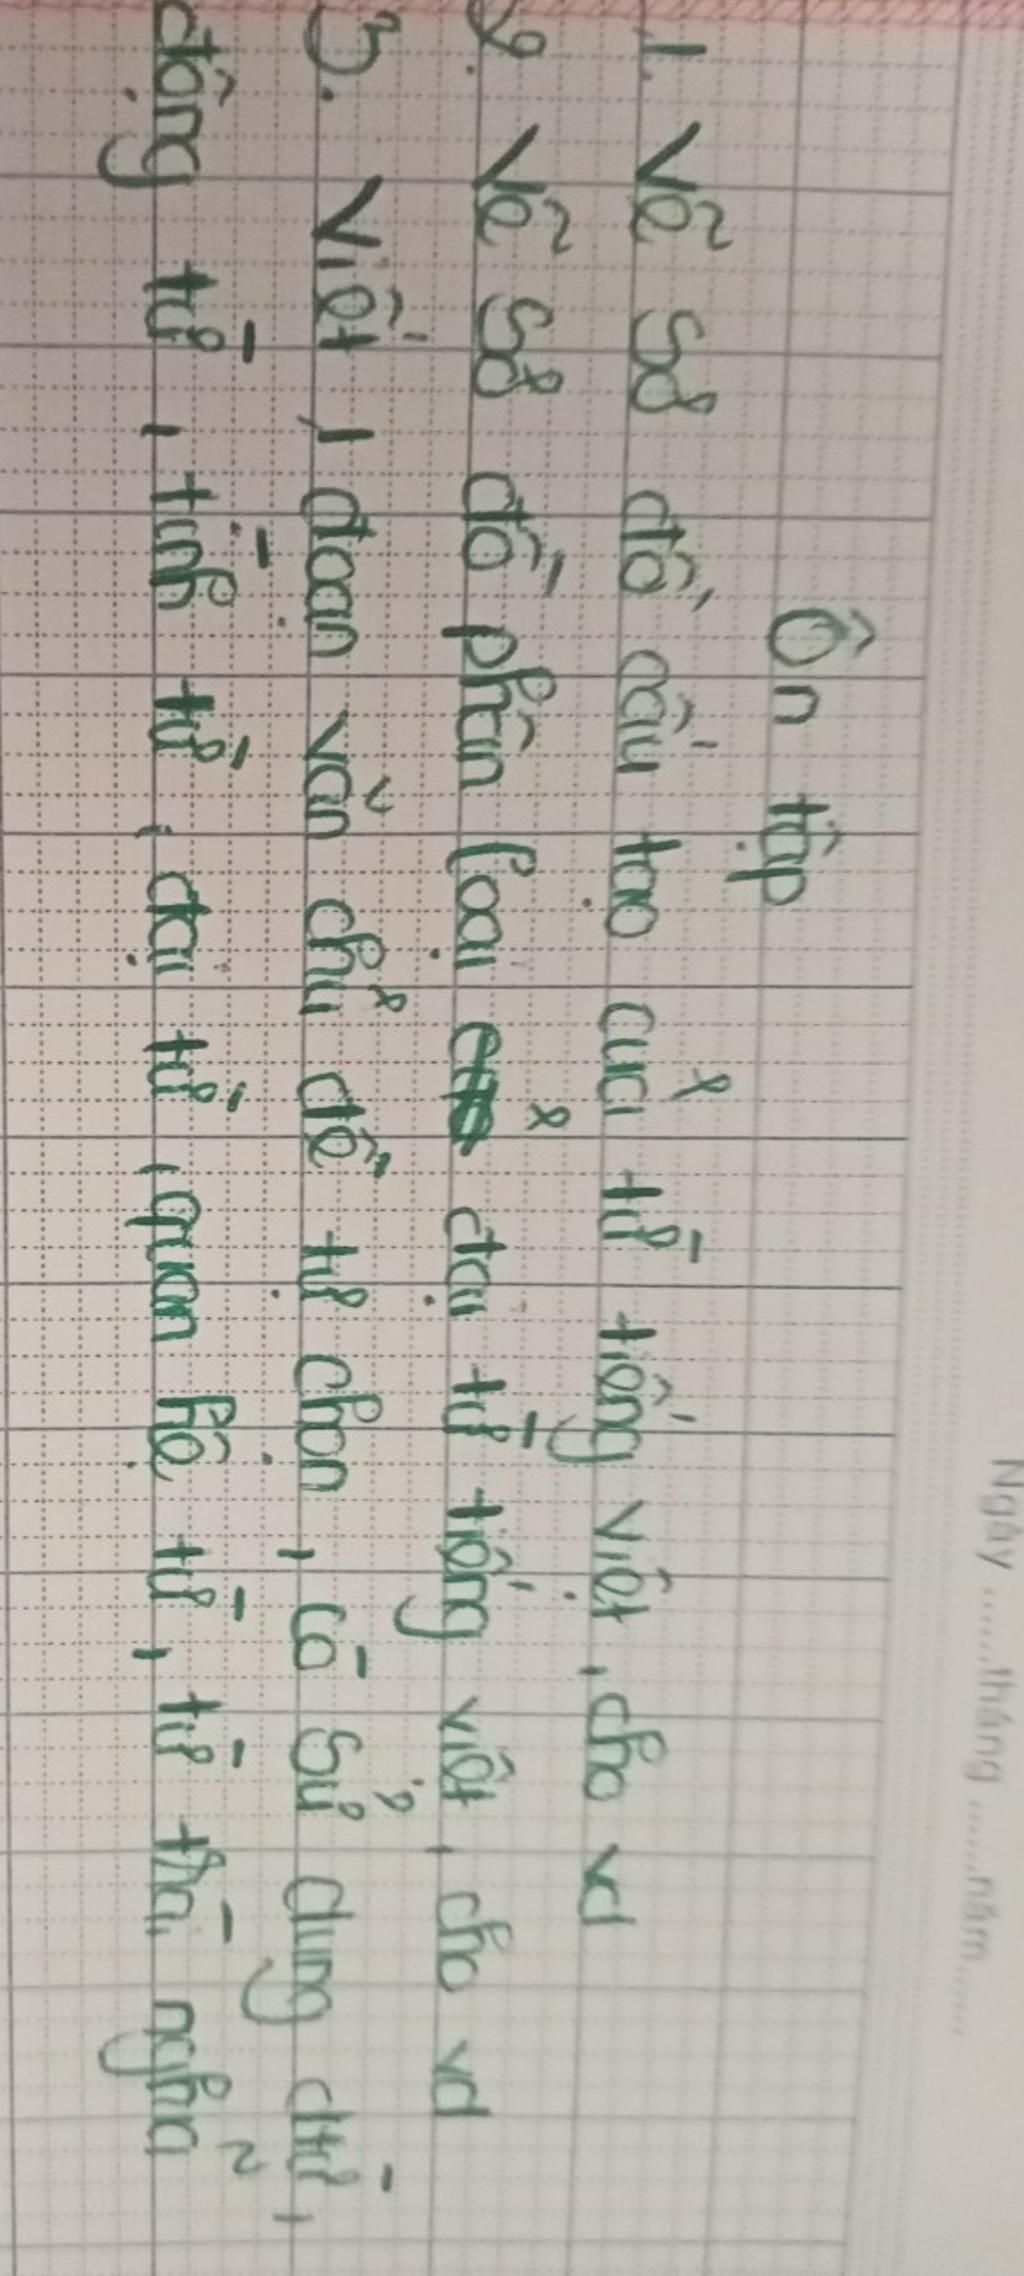 Ngày ...... tháng ...... năm ......
Ôn tập
1. Vẽ sơ đồ cấu tạo của từ tiếng việt, cho vd
2. Vẽ sơ đồ phân loại của đại từ tiếng việt, cho vd
3. Viết 1 đoạn văn chủ đề tự chọn, có sử dụng dtừ,
động từ, tính từ, đại từ, quan hệ từ, từ trái nghĩa